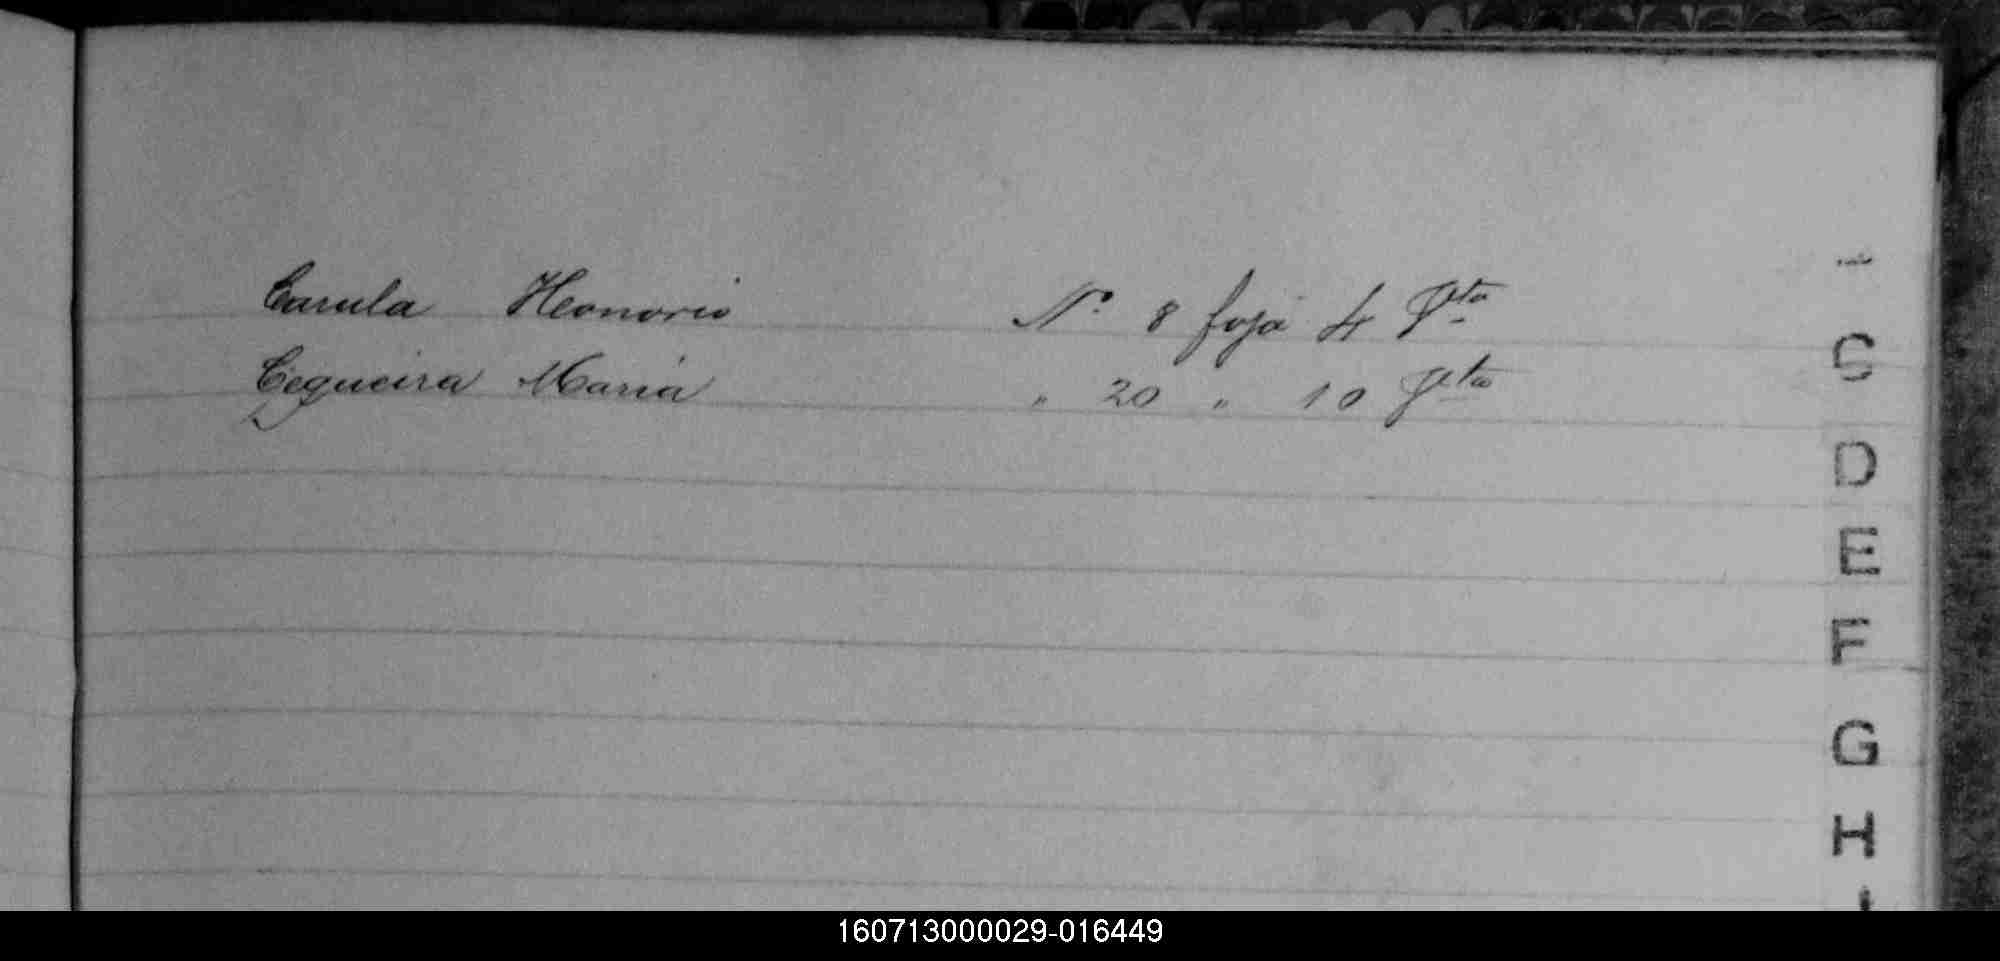 Carula Honorio Nº 8 foja 4 Vta
Cequeira Maria " 20 " 10 Vta
C
D
E
F
G
H
160713000029-016449